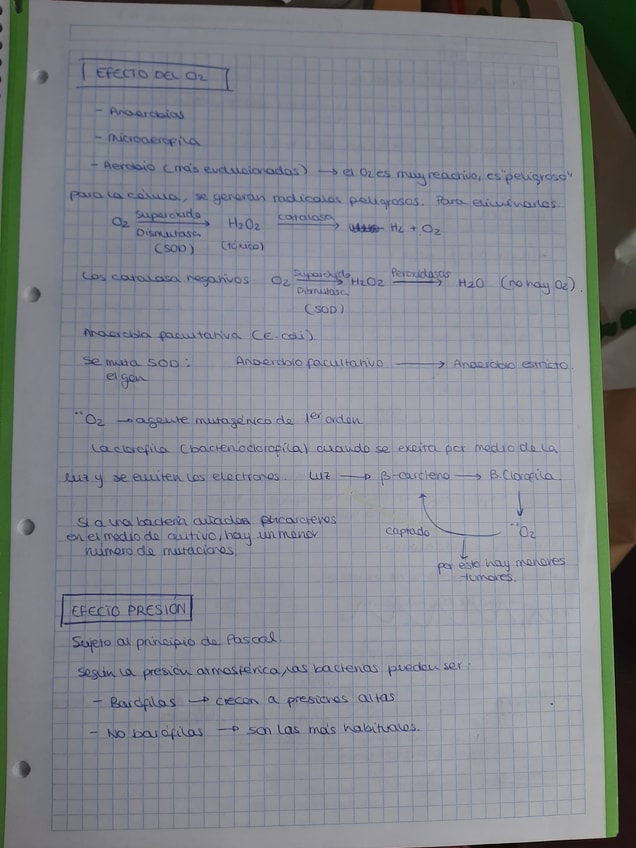 EFECTO DEL O2
- Anaerobios
- microaerofila
- Aerobio (más evolucionadas) → el O2 es muy reactivo, es "peligroso"
para la célula, se generan radicales peligrosos. Para eliminarlos:
O2 Superóxido Dismutasa (SOD) → H2O2 (tóxico) catalasa → H2 + O2
Los catalasa negativos O2 Superóxido Dismutasa (SOD) → H2O2 Peroxidasas → H2O (no hay O2).
Anaerobia facultativa (E. coli)
Se muta SOD: Anaerobio facultativo → Anaerobio estricto.
el gen
¨O2 → agente mutagénico de 1er orden
La clorofila (bacterioclorofila) cuando se excita por medio de la
luz y se emiten los electrones. Luz → β-caroteno → B. Clorofila
Si a una bacteria añades β carotenos
en el medio de cultivo, hay un menor
número de mutaciones.
captado
¨O2
por esto hay menores
tumores.
EFECTO PRESIÓN
Sujeto al principio de Pascal.
Según la presión atmosférica, las bacterias pueden ser:
- Barófilas → crecen a presiones altas
- No barófilas → son las más habituales.